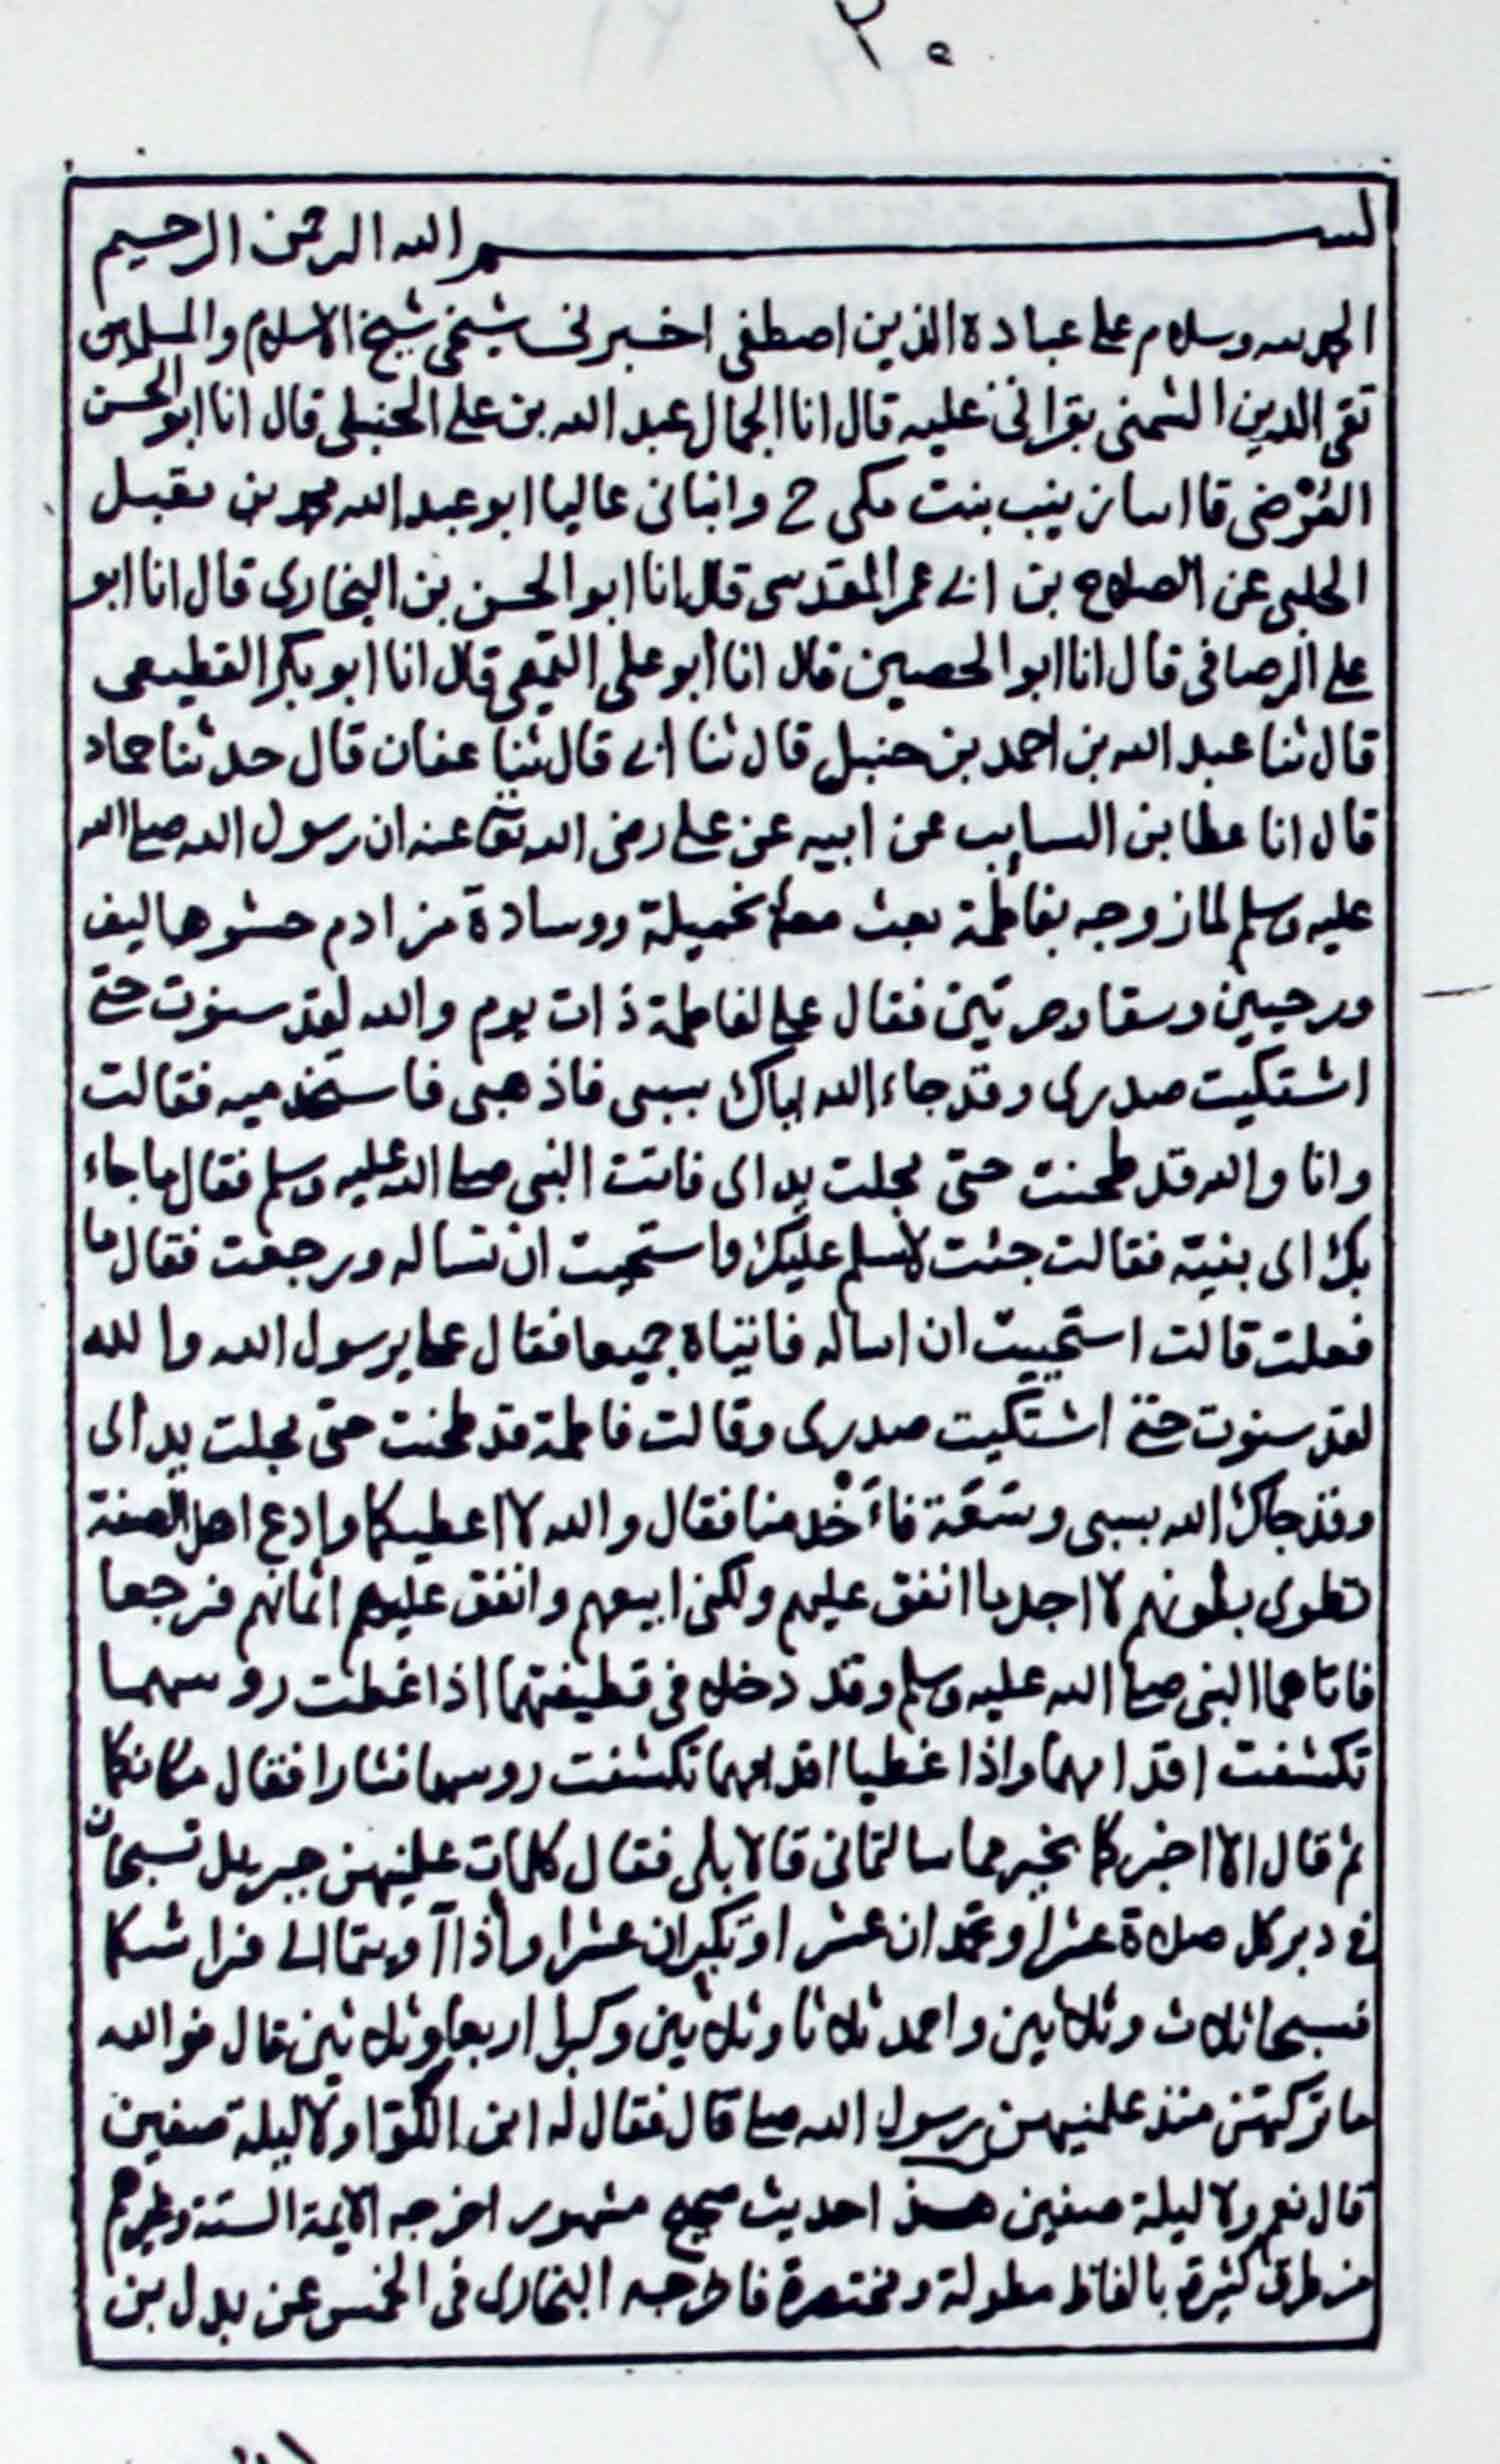 ٢٠
بسم الله الرحمن الرحيم
الحمد لله وسلام على عباده الذين اصطفى اخبرني شيخي شيخ الاسلام والمسلمين
تقى الدين الشمنى بقرانى عليه قال انا الجمال عبد الله بن على الحنبلى قال انا ابو الحسن
العُرْضى قا اسا زينب بنت مكى ح وانبانى عاليا ابو عبد الله محمد بن مقبل
الحلبى عن الصلاح بن ابى عمر المقدسى قال انا ابو الحسن بن البخارى قال انا ابو
على الرصافى قال انا ابو الحصين قال انا أبو على التميمى قال انا ابو بكر القطيعى
قال ثنا عبد الله بن احمد بن حنبل قال ثنا ابى قال ثنا عفان قال حدثنا حماد
قال انا عطا بن السايب عن ابيه عن على رضى الله تعا عنه ان رسول الله صلى الله
عليه وسلم لما زوجه بفاطمة بعث معها بخميلة ووسادة من ادم حشوها ليف
ورحيين وسقا وجرتين فقال على لفاطمة ذات يوم والله لقد سنوت حتى
اشتكيت صدرى وقد جاء الله اباك بسبى فاذهبى فاستخدميه فقالت
وانا والله قد طحنت حتى مجلت يداى فاتت النبى صلى الله عليه وسلم فقال ما جاء
بك اى بنية فقالت جئت لاسلم عليك واستحيت ان تساله ورجعت فقال ما
فعلت قالت استحييت ان اساله فاتياه جميعا فقال على يرسول الله والله
لقد سنوت حتى اشتكيت صدرى وقالت فاطمة قد طحنت حتى مجلت يداى
وقد جاك الله بسبى وسَعَة فاَخْدمنا فقال والله لا اعطيكما وادع اهل الصفة
تطوى بطونهم لا اجد ما انفق عليهم ولكنى ابيعهم وانفق عليهم اثمانهم فرجعا
فاتاهما النبى صلى الله عليه وسلم وقد دخلا فى قطيفتهما اذا غطت روسهما
تكشفت اقدامهما واذا غطيا اقدامهما تكشفت روسهما فثارا فقال مكانكما
ثم قال الا اخبركما بخير مما سالتمانى قالا بلى فقال كلمات علمنيهن جبريل تسبحان
فى دبر كل صلاة عشرا وتحمدان عشر او تكبران عشرا واذا آويتما الى فراشكما
فسبحا ثلاث وثلاثين واحمد ثلاثا وثلاثين وكبرا اربعا وثلاثين قال فوالله
ما تركتهن منذ علمنيهن رسول الله صلى قال فقال له ابن الكوّا ولا ليلة صفين
قال نعم ولا ليلة صفين هذا حديث صحيح مشهور اخرجه الايمة الستة وغيرهم
من طرق كثيرة بالفاظ مطولة ومختصرة فاخرجه البخارى فى الخمس عن بدل بن